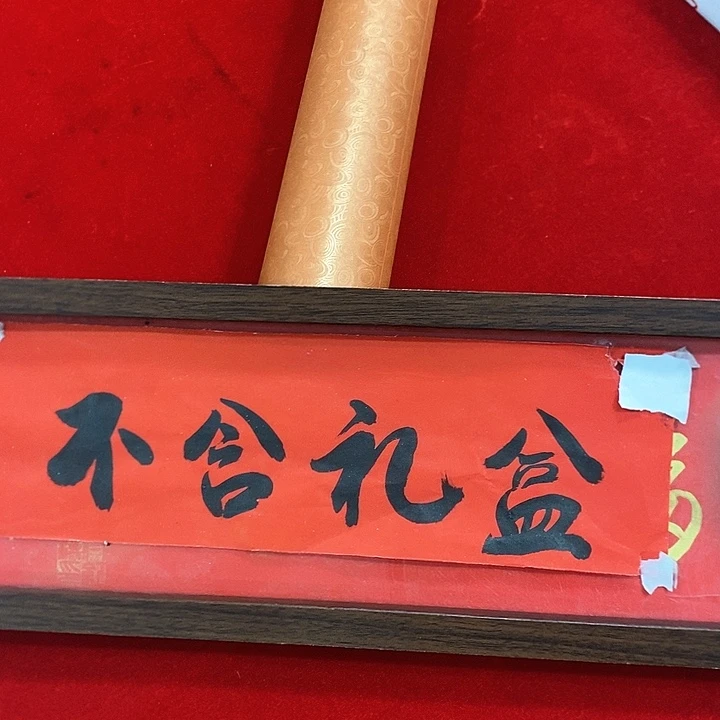 不含礼盒